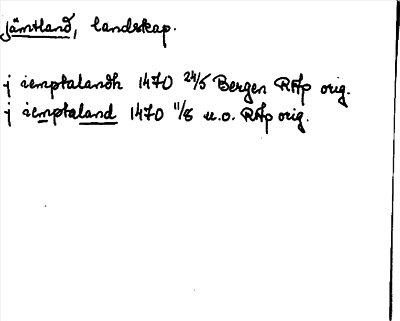 Jämtland, landskap.
j iemptalandh 1470 24/5 Bergen RAp orig.
j iemptaland 1470 11/8 u.o. RAp orig.